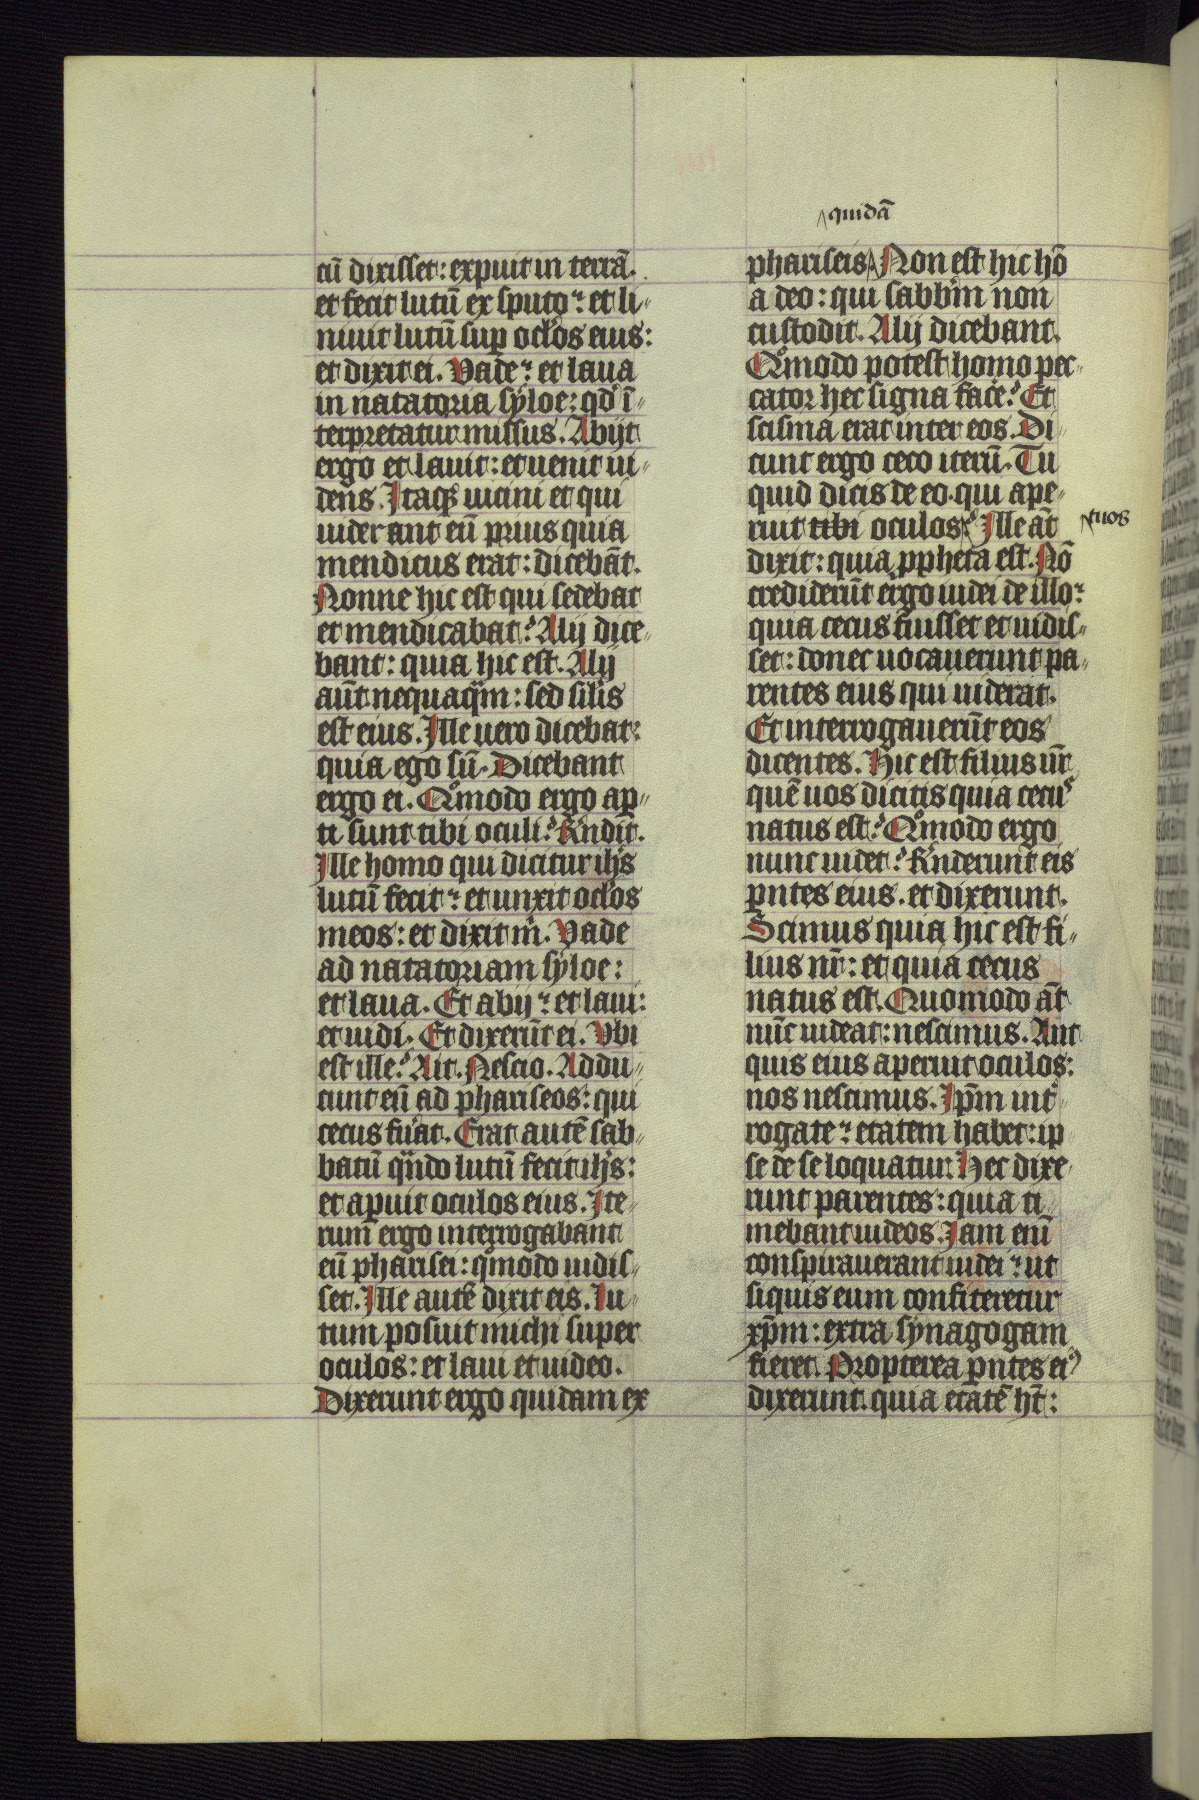 cū dixisset: expuit in terrā.
et fecit lutū ex sputo: et li-
niuit lutū sup oclos eius:
et dixit ei. Vade: et laua
in natatoria syloe: qd ī-
terpretatur missus. Abijt
ergo et lauit: et uenit ui-
dens. Itaqȝ uicini et qui
uiderant eū prius quia
mendicus erat: dicebāt.
Nonne hic est qui sedebat
et mendicabat? Alij dice-
bant: quia hic est. Alij
aūt nequaqm: sed silis
est eius. Ille uero dicebat:
quia ego sū. Dicebant
ergo ei. Qmodo ergo ap-
ti sunt tibi oculi? Rndit.
Ille homo qui dicitur ihs
lutū fecit: et unxit oclos
meos: et dixit m. Vade
ad natatoriam syloe:
et laua. Et abij: et laui:
et uidi. Et dixerūt ei. Vbi
est ille? Ait. Nescio. Addu-
cunt eū ad phariseos: qui
cecus fuat. Erat autē sab-
batū qndo lutū fecit ihs:
et apuit oculos eius. Ite-
rum ergo interrogabant
eū pharisei: qmodo uidis-
set. Ille autē dixit eis. Lu-
tum posuit michi super
oculos: et laui et uideo.
Dixerunt ergo quidam ex
quidā
phariseis Non est hic hō
a deo: qui sabbm non
custodit. Alij dicebant.
Qmodo potest homo pec-
cator hec signa face? Et
scisma erat inter eos. Di-
cunt ergo ceco iterū. Tu
quid dicis de eo. qui ape-
ruit tibi oculos? Ille āt
tuos
dixit: quia ppheta est. Nō
crediderūt ergo iudei de illo:
quia cecus fuisset et uidis-
set: donec uocauerunt pa-
rentes eius qui uiderat.
Et interrogauerūt eos
dicentes. Hic est filius ur
quē uos dicitis quia cecus
natus est? Qmodo ergo
nunc uidet? Rnderunt eis
pntes eius. et dixerunt.
Scimus quia hic est fi-
lius nr: et quia cecus
natus est. Quomodo āt
nūc uideat: nescimus. Aut
quis eius aperuit oculos:
nos nescimus. Ipm int-
rogate: etatem habet: ip
se de se loquatur. Hec dixe-
runt parentes: quia ti-
mebant iudeos. Iam enī
conspirauerant iudei: ut
siquis eum confiteretur
xpm: extra synagogam
fieret. Propterea pntes ei9
dixerunt. quia etatē ht: